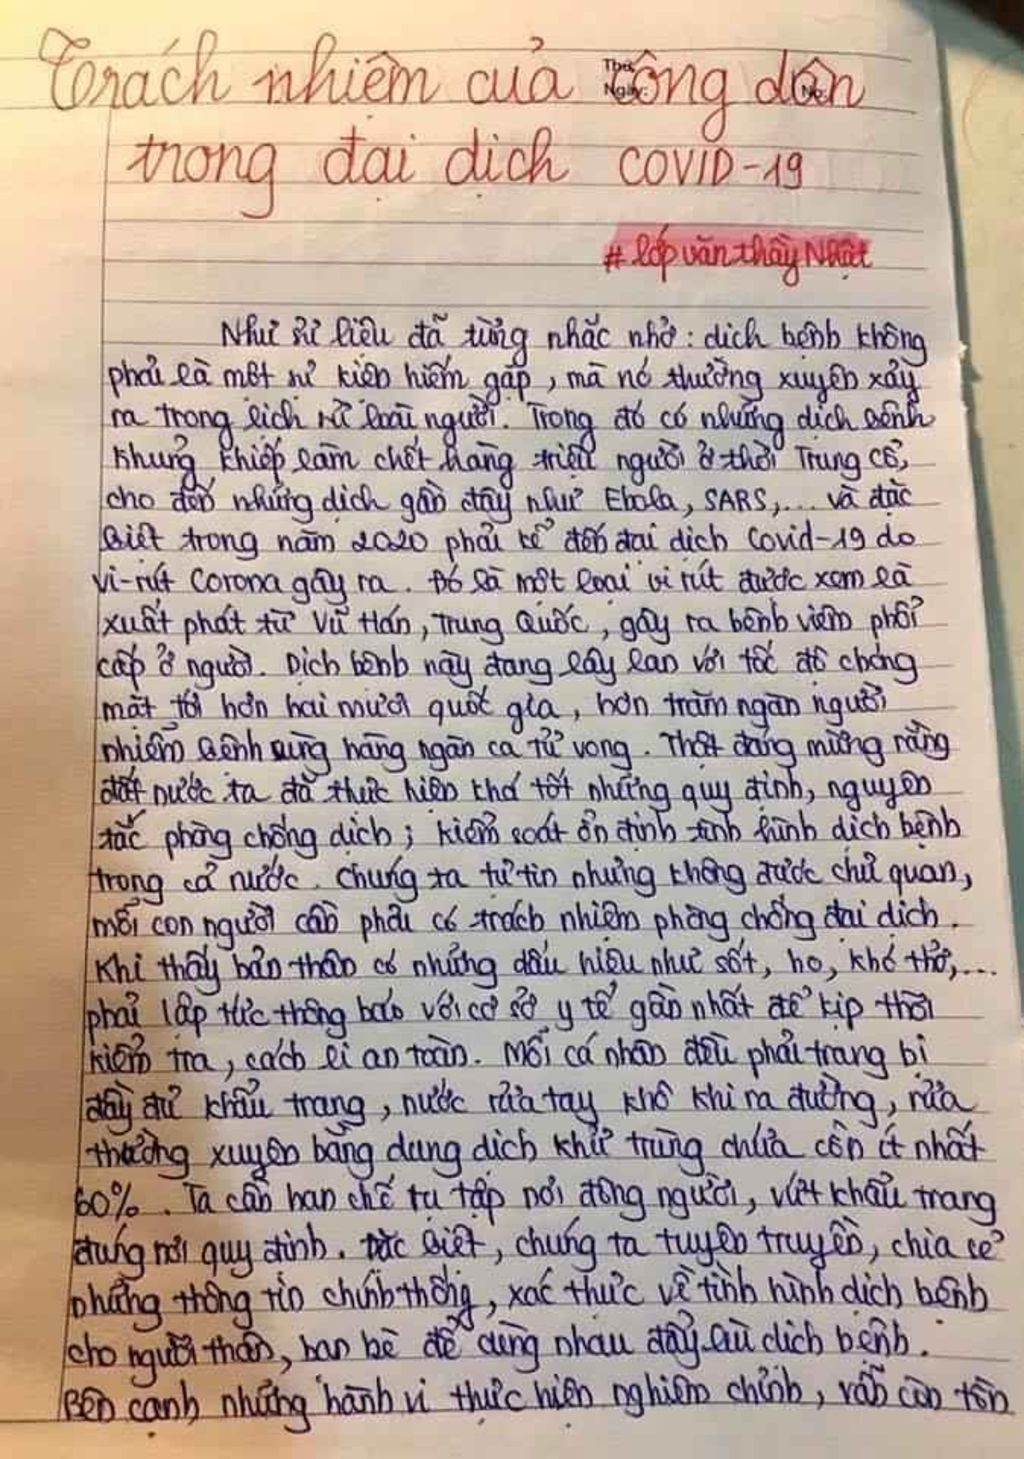 Trách nhiệm của công dân
trong đại dịch COVID-19
Thứ
Ngày:
No:
#lớp văn thầy Nhật
Như sử liệu đã từng nhắc nhở: dịch bệnh không
phải là một sự kiện hiếm gặp, mà nó thường xuyên xảy
ra trong lịch sử loài người. Trong đó có những dịch bệnh
khủng khiếp làm chết hàng triệu người ở thời Trung Cổ,
cho đến những dịch gần đây như Ebola, SARS,... và đặc
biệt trong năm 2020 phải kể đến đại dịch Covid-19 do
vi-rút Corona gây ra. Đó là một loại vi rút được xem là
xuất phát từ Vũ Hán, Trung Quốc, gây ra bệnh viêm phổi
cấp ở người. Dịch bệnh này đang lây lan với tốc độ chóng
mặt tới hơn hai mươi quốc gia, hơn trăm ngàn người
nhiễm bệnh cùng hàng ngàn ca tử vong. Thật đáng mừng rằng
đất nước ta đã thực hiện khá tốt những quy định, nguyên
tắc phòng chống dịch; kiểm soát ổn định tình hình dịch bệnh
trong cả nước. Chúng ta tự tin nhưng không được chủ quan,
mỗi con người cần phải có trách nhiệm phòng chống đại dịch.
Khi thấy bản thân có những dấu hiệu như sốt, ho, khó thở,...
phải lập tức thông báo với cơ sở y tế gần nhất để kịp thời
kiểm tra, cách li an toàn. Mỗi cá nhân đều phải trang bị
đầy đủ khẩu trang, nước rửa tay khô khi ra đường, rửa
thường xuyên bằng dung dịch khử trùng chứa cồn ít nhất
60%. Ta cần hạn chế tụ tập nơi đông người, vứt khẩu trang
đúng nơi quy định. Đặc biệt, chúng ta tuyên truyền, chia sẻ
những thông tin chính thống, xác thực về tình hình dịch bệnh
cho người thân, bạn bè để cùng nhau đẩy lùi dịch bệnh.
Bên cạnh những hành vi thực hiện nghiêm chỉnh, vẫn còn tồn